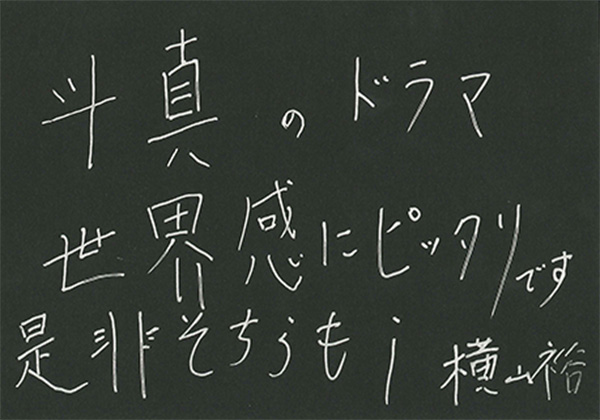 斗真のドラマ
世界感にピッタリです
是非そちらも！ 横山裕